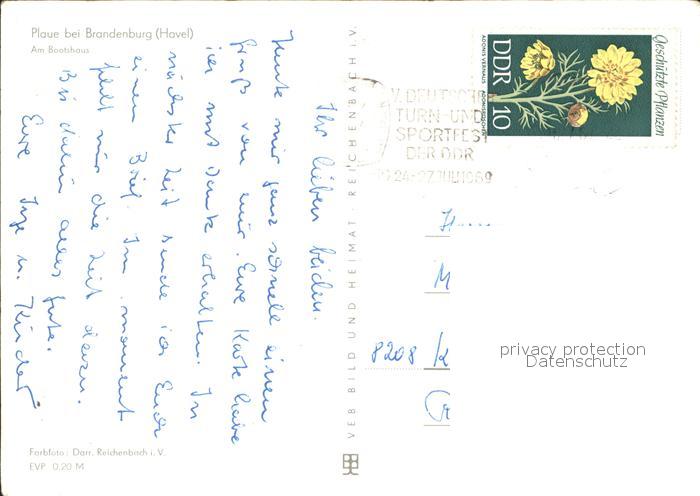 Plaue bei Brandenburg (Havel)
Am Bootshaus
Ihr lieben beiden.
Heute nur ganz schnell einen
Gruß von mir. Eure Karte habe
ich mit Dank erhalten. In
nächster Zeit sende ich Euch
einen Brief. Im Moment
fehlt mir die Zeit dazu.
Bis dahin alles Gute.
Eure Inge u. Kinder
Farbfoto: Darr, Reichenbach i. V.
EVP 0,20 M
VEB BILD UND HEIMAT REICHENBACH i. V.
Geschützte Pflanzen
ADONIS VERNALIS ADONISRÖSCHEN
DDR 10
V. DEUTSCHES
TURN- UND
SPORTFEST
DER DDR
24.-27. JULI 1969
H
M
8208 K
privacy protection
Datenschutz